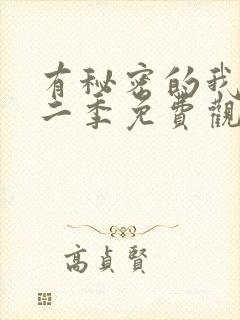 有秘密的我
二季免費觀
高貞賢